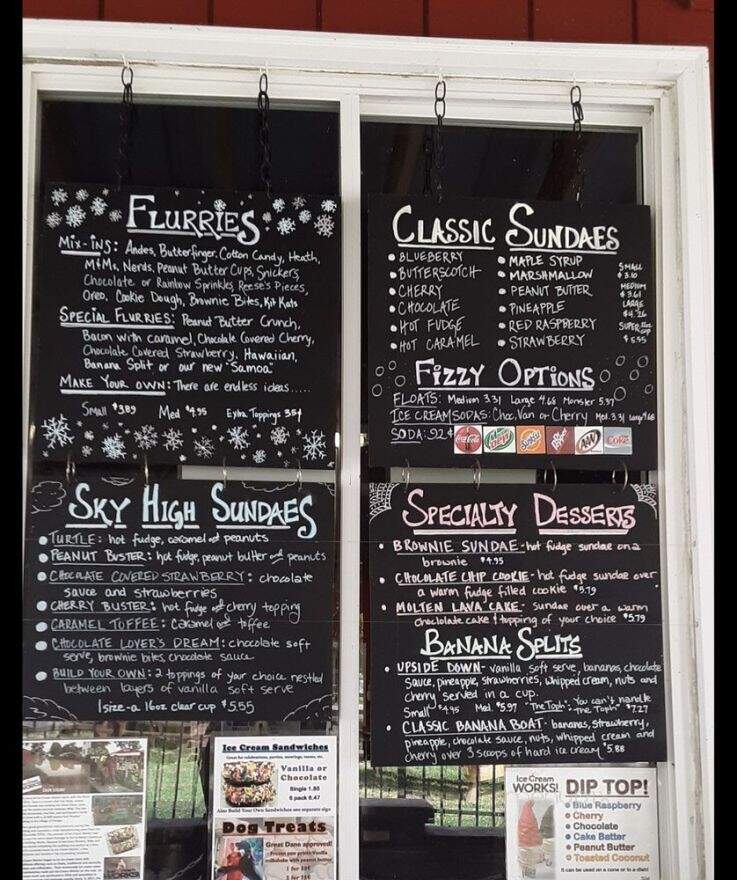 FLURRIES
Mix-ins: Andes, Butterfinger, Cotton Candy, Heath,
M&Ms, Nerds, Peanut Butter Cups, Snickers
Chocolate or Rainbow Sprinkles, Reese's Pieces,
Oreo, Cookie Dough, Brownie Bites, Kit Kats
SPECIAL FLURRIES: Peanut Butter Crunch,
Bacon with caramel, Chocolate Covered Cherry,
Chocolate Covered Strawberry, Hawaiian,
Banana Split or our new "Samoa"
MAKE YOUR OWN: There are endless ideas.....
Small $3.89 Med $4.95 Extra Toppings 35¢
CLASSIC SUNDAES
• BLUEBERRY
• BUTTERSCOTCH
• CHERRY
• CHOCOLATE
• HOT FUDGE
• HOT CARAMEL
• MAPLE SYRUP
• MARSHMALLOW
• PEANUT BUTTER
• PINEAPPLE
• RED RASPBERRY
• STRAWBERRY
SMALL
$3.10
MEDIUM
$3.61
LARGE
$4.26
SUPER
CUP
$5.55
FIZZY OPTIONS
FLOATS: Medium 3.31 Large 4.68 Monster 5.37
ICE CREAM SODAS: Choc, Van or Cherry Med. 3.31 Large 4.68
SODA: .92¢
Coca-Cola
Dew
Sunkist
A&W
Diet Coke
SKY HIGH SUNDAES
• TURTLE: hot fudge, caramel and peanuts
• PEANUT BUSTER: hot fudge, peanut butter and peanuts
• CHOCOLATE COVERED STRAWBERRY: chocolate
sauce and strawberries
• CHERRY BUSTER: hot fudge and cherry topping
• CARAMEL TOFFEE: caramel and toffee
• CHOCOLATE LOVER'S DREAM: chocolate soft
serve, brownie bites, chocolate sauce
• BUILD YOUR OWN: 2 toppings of your choice nestled
between layers of vanilla soft serve
1 size - a 16oz clear cup $5.55
SPECIALTY DESSERTS
• BROWNIE SUNDAE - hot fudge sundae on a
brownie $4.95
• CHOCOLATE CHIP COOKIE - hot fudge sundae over
a warm fudge filled cookie $5.79
• MOLTEN LAVA CAKE - sundae over a warm
choclolate cake & topping of your choice $5.79
BANANA SPLITS
• UPSIDE DOWN - vanilla soft serve, bananas, chocolate
sauce, pineapple, strawberries, whipped cream, nuts and
cherry served in a cup.
Small $4.95 Med. $5.97 "The Toph": You can't handle "The Toph" $7.27
• CLASSIC BANANA BOAT - bananas, strawberry,
pineapple, chocolate sauce, nuts, whipped cream and
cherry over 3 scoops of hard ice cream $5.88
Ice Cream Sandwiches
Great for celebrations, parties, meetings, teams, etc.
Vanilla or
Chocolate
Single 1.80
6 pack 8.47
Also Build Your Own Sandwiches see separate sign
Dog Treats
Great Dane approved!
Frozen paw prints Vanilla
milkshake with peanut butter
Ice Cream
WORKS!
DIP TOP!
• Blue Raspberry
• Cherry
• Chocolate
• Cake Batter
• Peanut Butter
• Toasted Coconut
It can be used on a cone or in a dish!